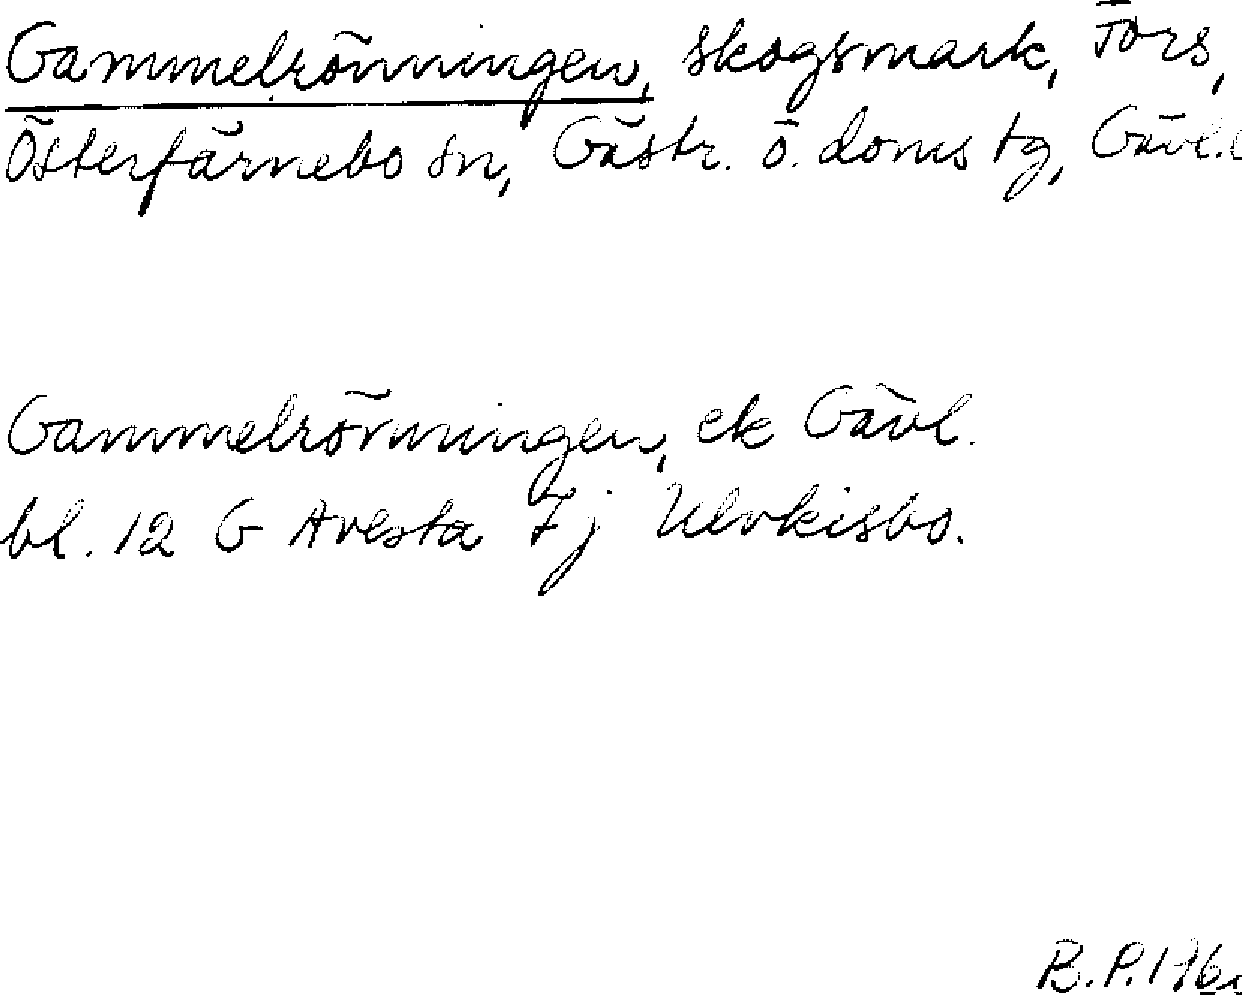 Gammelrönningen, skogsmark, Fors,
Österfärnebo sn, Gästr. ö. doms tg, Gävl.l
Gammelrönningen, ek Gävl.
bl. 12 G Avesta 7j Ulvkisbo.
B.P. 196